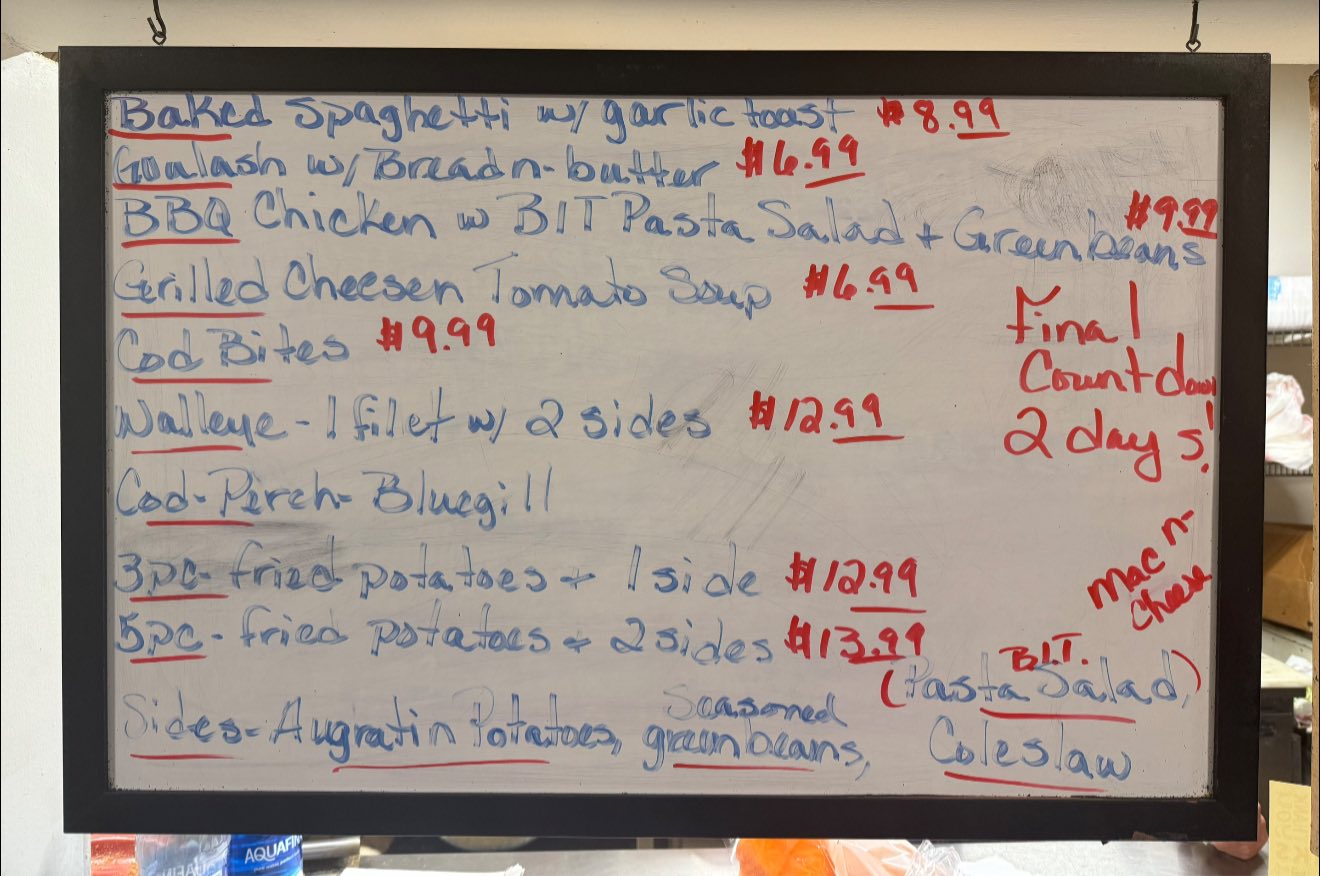 Baked Spaghetti w/ garlic toast $8.99
Goulash w/ Bread n-butter $6.99
BBQ Chicken w BIT Pasta Salad + Greenbeans $9.99
Grilled Cheesen Tomato Soup $6.99
Cod Bites $9.99
Final
Countdown
2 days!
Walleye - 1 filet w/ 2 sides $12.99
Cod-Perch-Bluegill
3pc- fried potatoes + 1 side $12.99
5pc- fried potatoes + 2 sides $13.99
Mac n-
Cheese
B.I.T.
(Pasta Salad,)
Sides- Augratin Potatoes, Seasoned greenbeans, Coleslaw
AQUAFIN